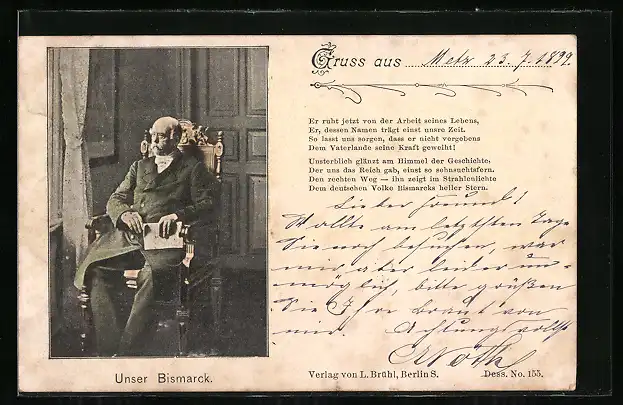 Gruss aus Metz 23. 7. 1899.
Er ruht jetzt von der Arbeit seines Lebens,
Er, dessen Namen trägt einst unsre Zeit.
So lasst uns sorgen, dass er nicht vergebens
Dem Vaterlande seine Kraft geweiht!
Unsterblich glänzt am Himmel der Geschichte,
Der uns das Reich gab, einst so sehnsuchtsfern.
Den rechten Weg — ihn zeigt im Strahlenlichte
Dem deutschen Volke Bismarcks heller Stern.
Lieber Freund!
Wollte am letzten Tage
Sie noch besuchen, war
mir aber leider un-
möglich, bitte grüßen
Sie Ihre Braut von
mir. Achtungsvollst
Noth
Unser Bismarck.
Verlag von L. Brühl, Berlin S. Dess. No. 155.